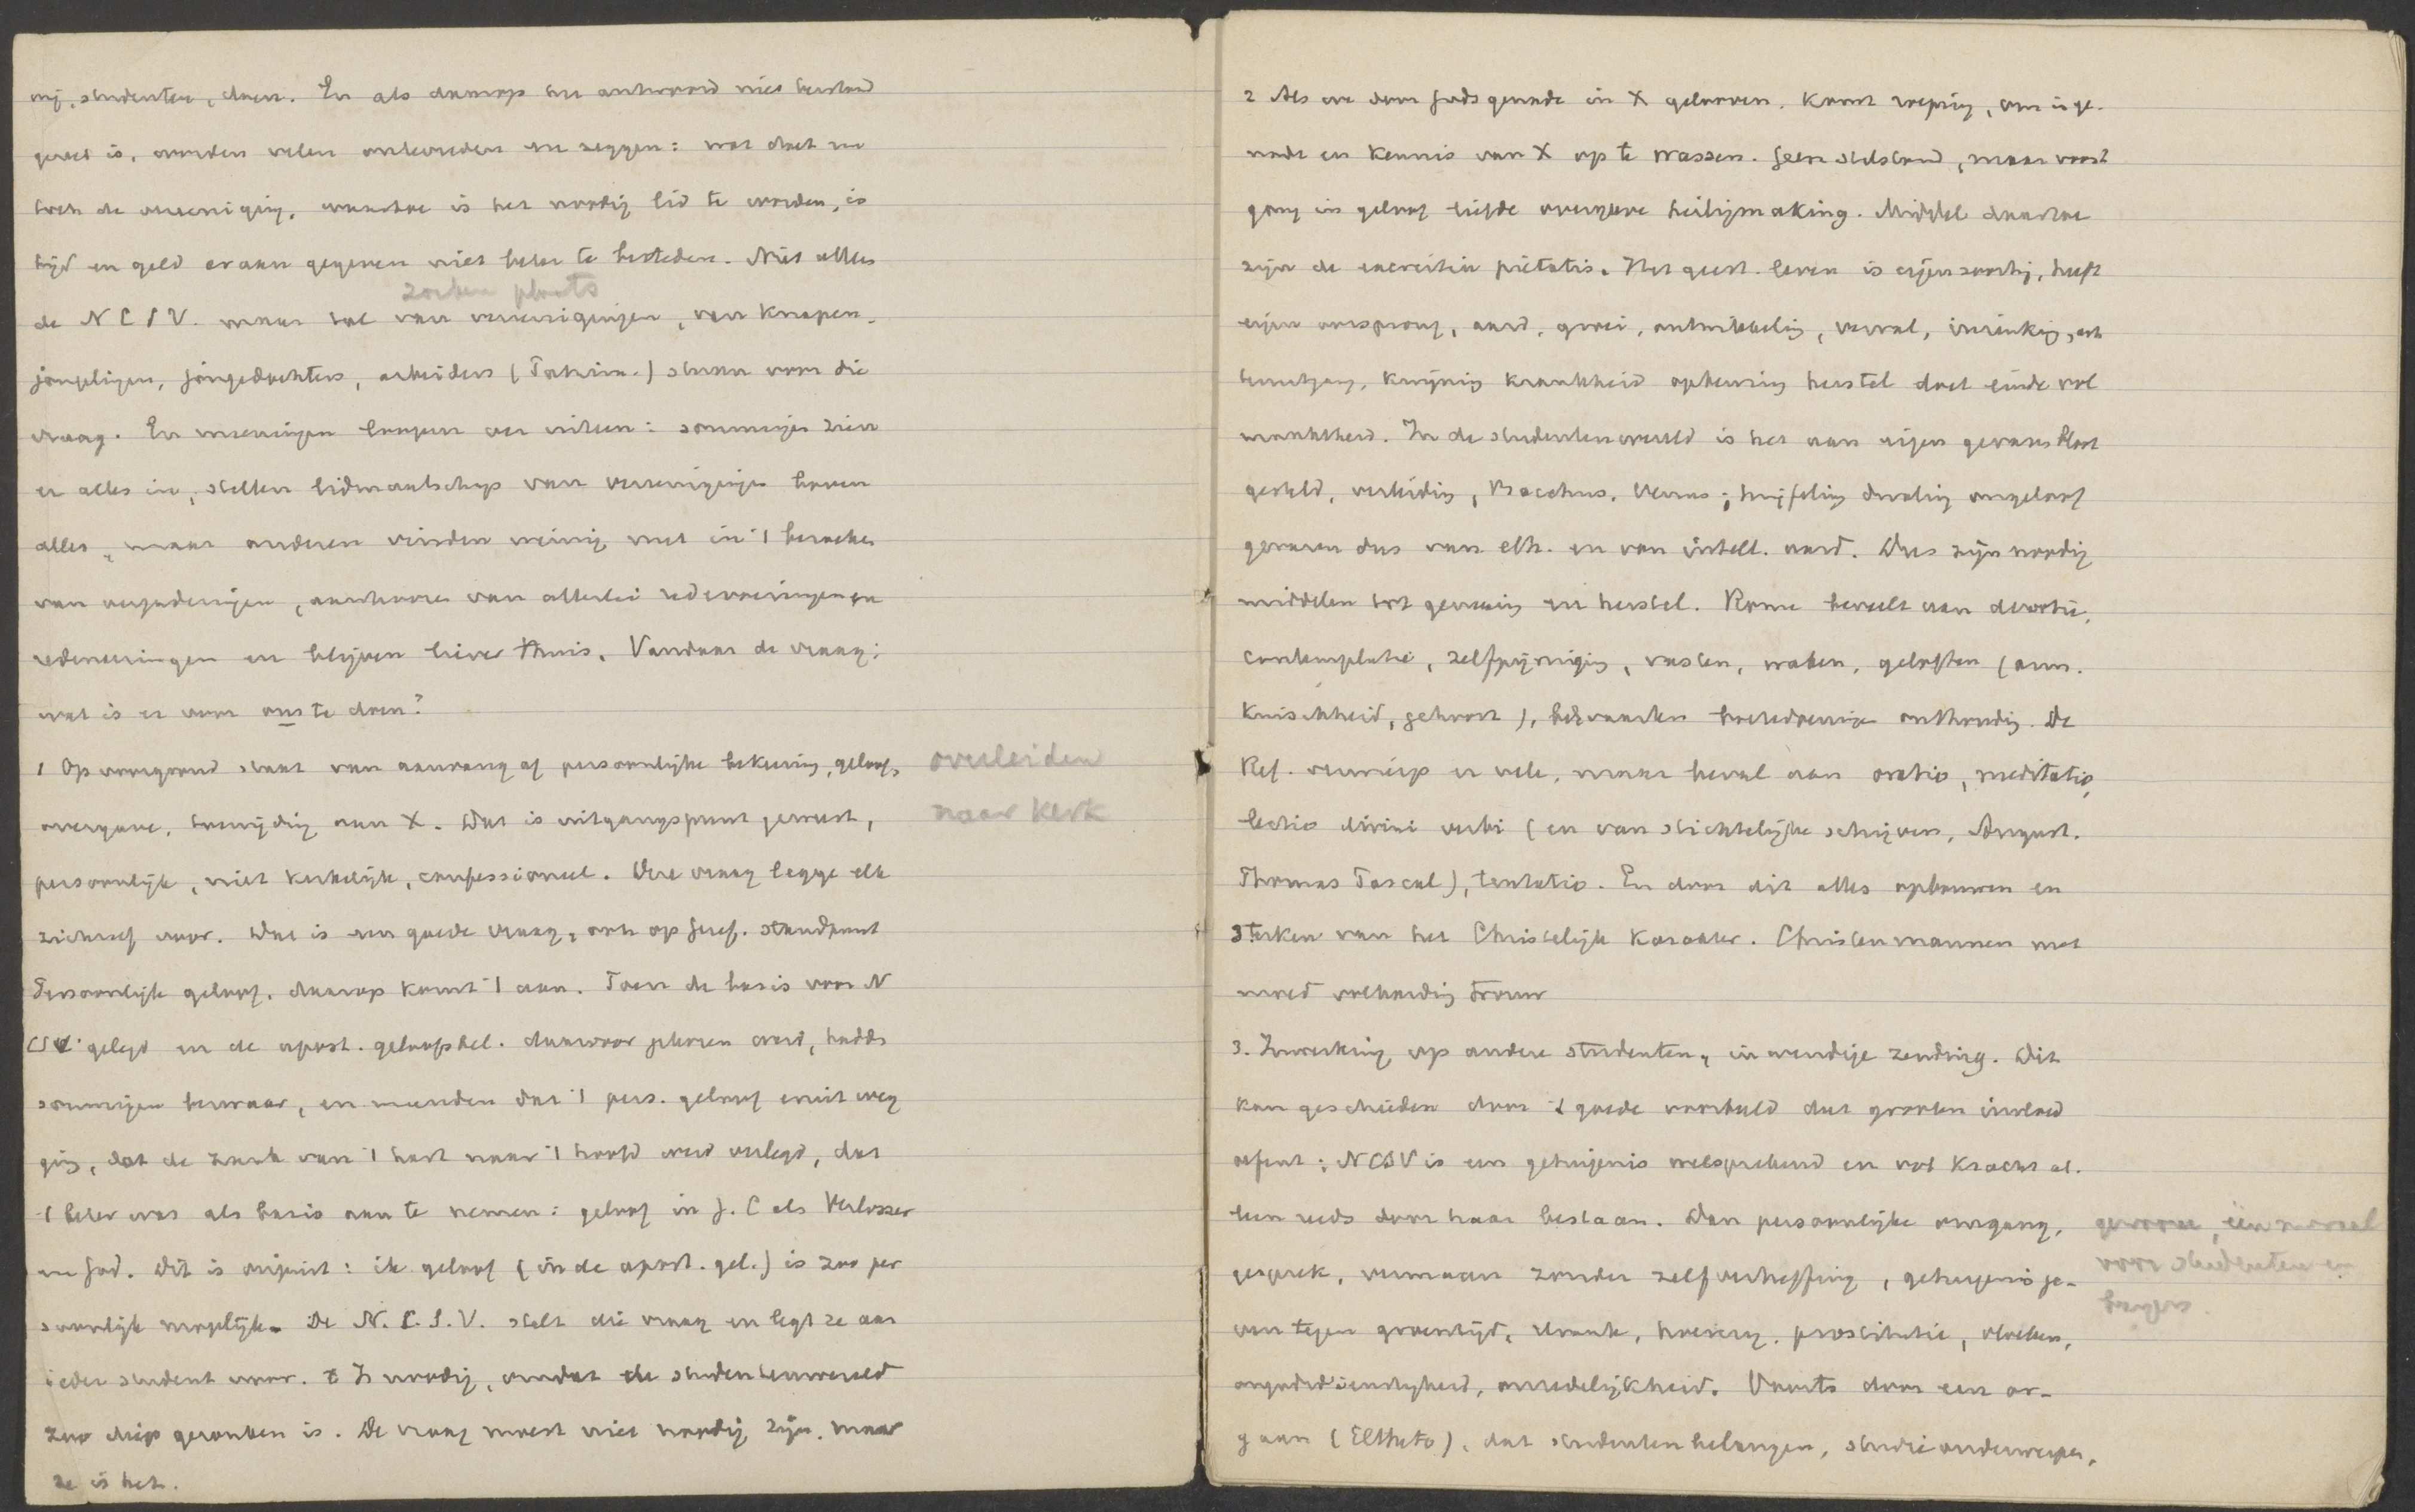 wij, studenten, doen. En als daarop het antwoord niet bestand
geweest is, worden velen ontevreden en zeggen: wat doet nu
toch de vereeniging, waartoe is het noodig lid te worden, is
tijd en geld eraan gegeven niet beter te besteden. Niet alleen
zoeken plaats
de NCSV. maar tal van vereenigingen, van knapen-
jongelingen, jongedochters, arbeiders (Patrim.) staan voor die
vraag. En meeningen loopen ver uiteen: sommigen zien
er alles in, stellen lidmaatschap van vereenigingen boven
alles, maar anderen vinden weinig nut in 't bezoeken
van vergaderingen, aanhooren van allerlei redevoeringen en
redeneeringen en blijven liever thuis. Vandaar de vraag:
wat is er voor ons te doen?
1 Op voorgrond staat van aanvang af persoonlijke bekeering, geloof,
overleiden
overgave, toewijding aan X. Dat is uitgangspunt geweest,
naar kerk
persoonlijk, niet kerkelijk, confessioneel. Deze vraag legge elk
zichzelf voor. Dat is een goede vraag, ook op Geref. standpunt
Persoonlijk geloof, daarop komt 't aan. Toen de basis voor N
CSV gelegd en de apost. geloofsbel. daarvoor gekozen werd, hadden
sommigen bezwaar, en meenden dat 't pers. geloof eruit weg
ging, dat de zaak van 't hart naar 't hoofd werd verlegd, dat
't beter was als basis aan te nemen: geloof in J. C als Verlosser
en God. Dit is onjuist: ik geloof (in de apost. gel.) is zoo per
soonlijk mogelijk. De N.C.S.V. stelt die vraag en legt ze aan
ieder student voor. Is noodig, omdat de studentenwereld
zoo diep gezonken is. De vraag moest niet noodig zijn, maar
ze is het.
2 Als we door Gods genade in X gelooven. Komt roeping, om in ge-
nade en kennis van X op te wassen. Geen stilstand, maar voort
gang in geloof liefde overgave heiligmaking. Middel daartoe
zijn de exercitia pietatis. Het geest. leven is eigensoortig, heeft
eigen oorsprong, aard, groei, ontwikkeling, verval, inzinking, ach
teruitgang, kwijning krankheid opbeuring herstel doel einde vol
maaktheid. In de studentenwereld is het aan eigen gevaren bloot
gesteld, verleiding, Bacchus, Venus; twijfeling dwaling ongeloof
gevaren dus van eth. en van intell. aard. Dus zijn noodig
middelen tot genezing en herstel. Rome beveelt aan devotie,
contemplatie, zelfpijniging, vasten, waken, geloften (arm.
kuischheid, gehoorz.), bedevaarten boetedoeningen onthouding. De
Ref. verwierp er vele, maar beval aan oratio, meditatio,
lectio divini verbi (en van stichtelijke schrijvers, August.
Thomas Pascal), tentatio. En door dit alles opbouwen en
sterken van het Christelijk karakter. Christenmannen met
moed volharding trouw
3. Inwerking op andere studenten, inwendige zending. Dit
kan geschieden door 't goede voorbeeld dat grooten invloed
oefent; NCSV is een getuigenis welsprekend en vol kracht al-
leen reeds door haar bestaan. Dan persoonlijke omgang,
gesprek, vermaan zonder zelfverheffing, getuigenis ge-
voor studenten en
ven tegen groentijd, drank, hoererij, prostitutie, vloeken,
ongodsdienstigheid, onzedelijkheid. Voorts door een or-
gaan (Eltheto), dat studentenbelangen, studie onderwerpen,